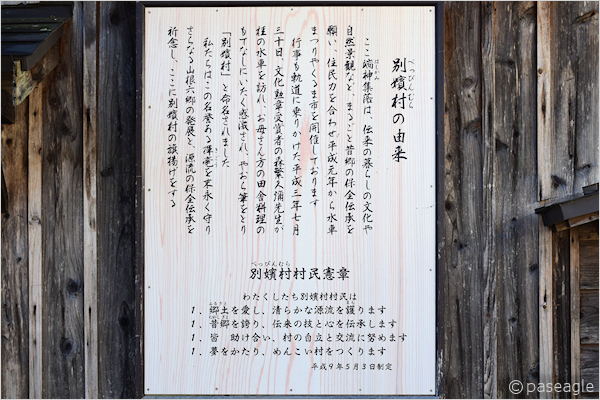 別嬪村の由来
べっぴんむら
ここ端神集落は、伝来の暮らしの文化や
はしかみ
自然景観など、まるごと昔郷の保全伝承を
願い、住民力を合わせ平成元年から水車
まつりやくるま市を開催しております
行事も軌道に乗りかけた平成三年七月
三十日、文化勲章受賞者の森繁久彌先生が
桂の水車を訪れ、お母さん方の田舎料理の
もてなしにいたく感激され、やおら筆をとり
「別嬪村」と命名されました
私たちはこの名誉ある揮毫を末永く守り
さらなる山根六郷の発展と、源流の保全伝承を
祈念し、ここに別嬪村の旗揚げをする
べっぴんむら
別嬪村村民憲章
わたくしたち別嬪村村民は
ふるさと
1、郷土を愛し、清らかな源流を護ります
1、昔郷を誇り、伝来の技と心を伝承します
1、皆　助け合い、村の自立と交流に努めます
1、夢をかたり、めんこい村をつくります
平成9年5月3日制定
© paseagle